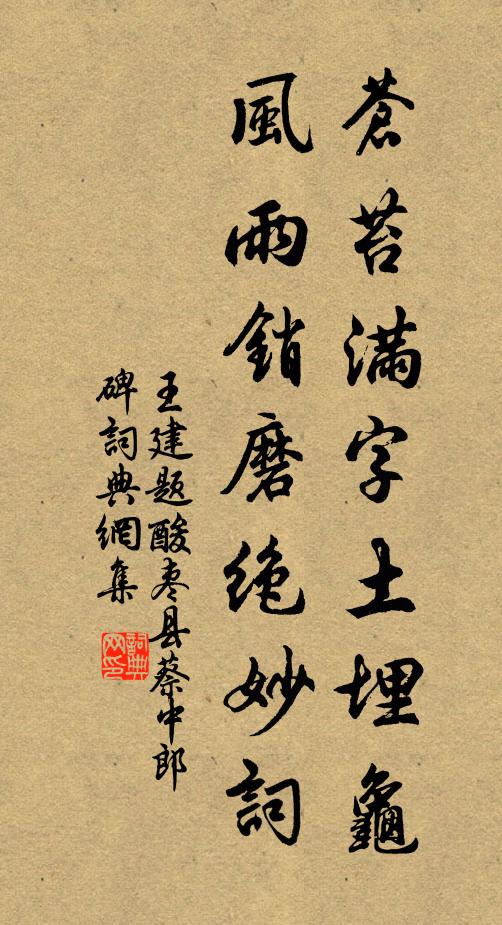 蒼苔滿字土埋龜
風雨銷磨绝妙詞
王建題酸枣县蔡中郎
碑詞典網集
詞典网印